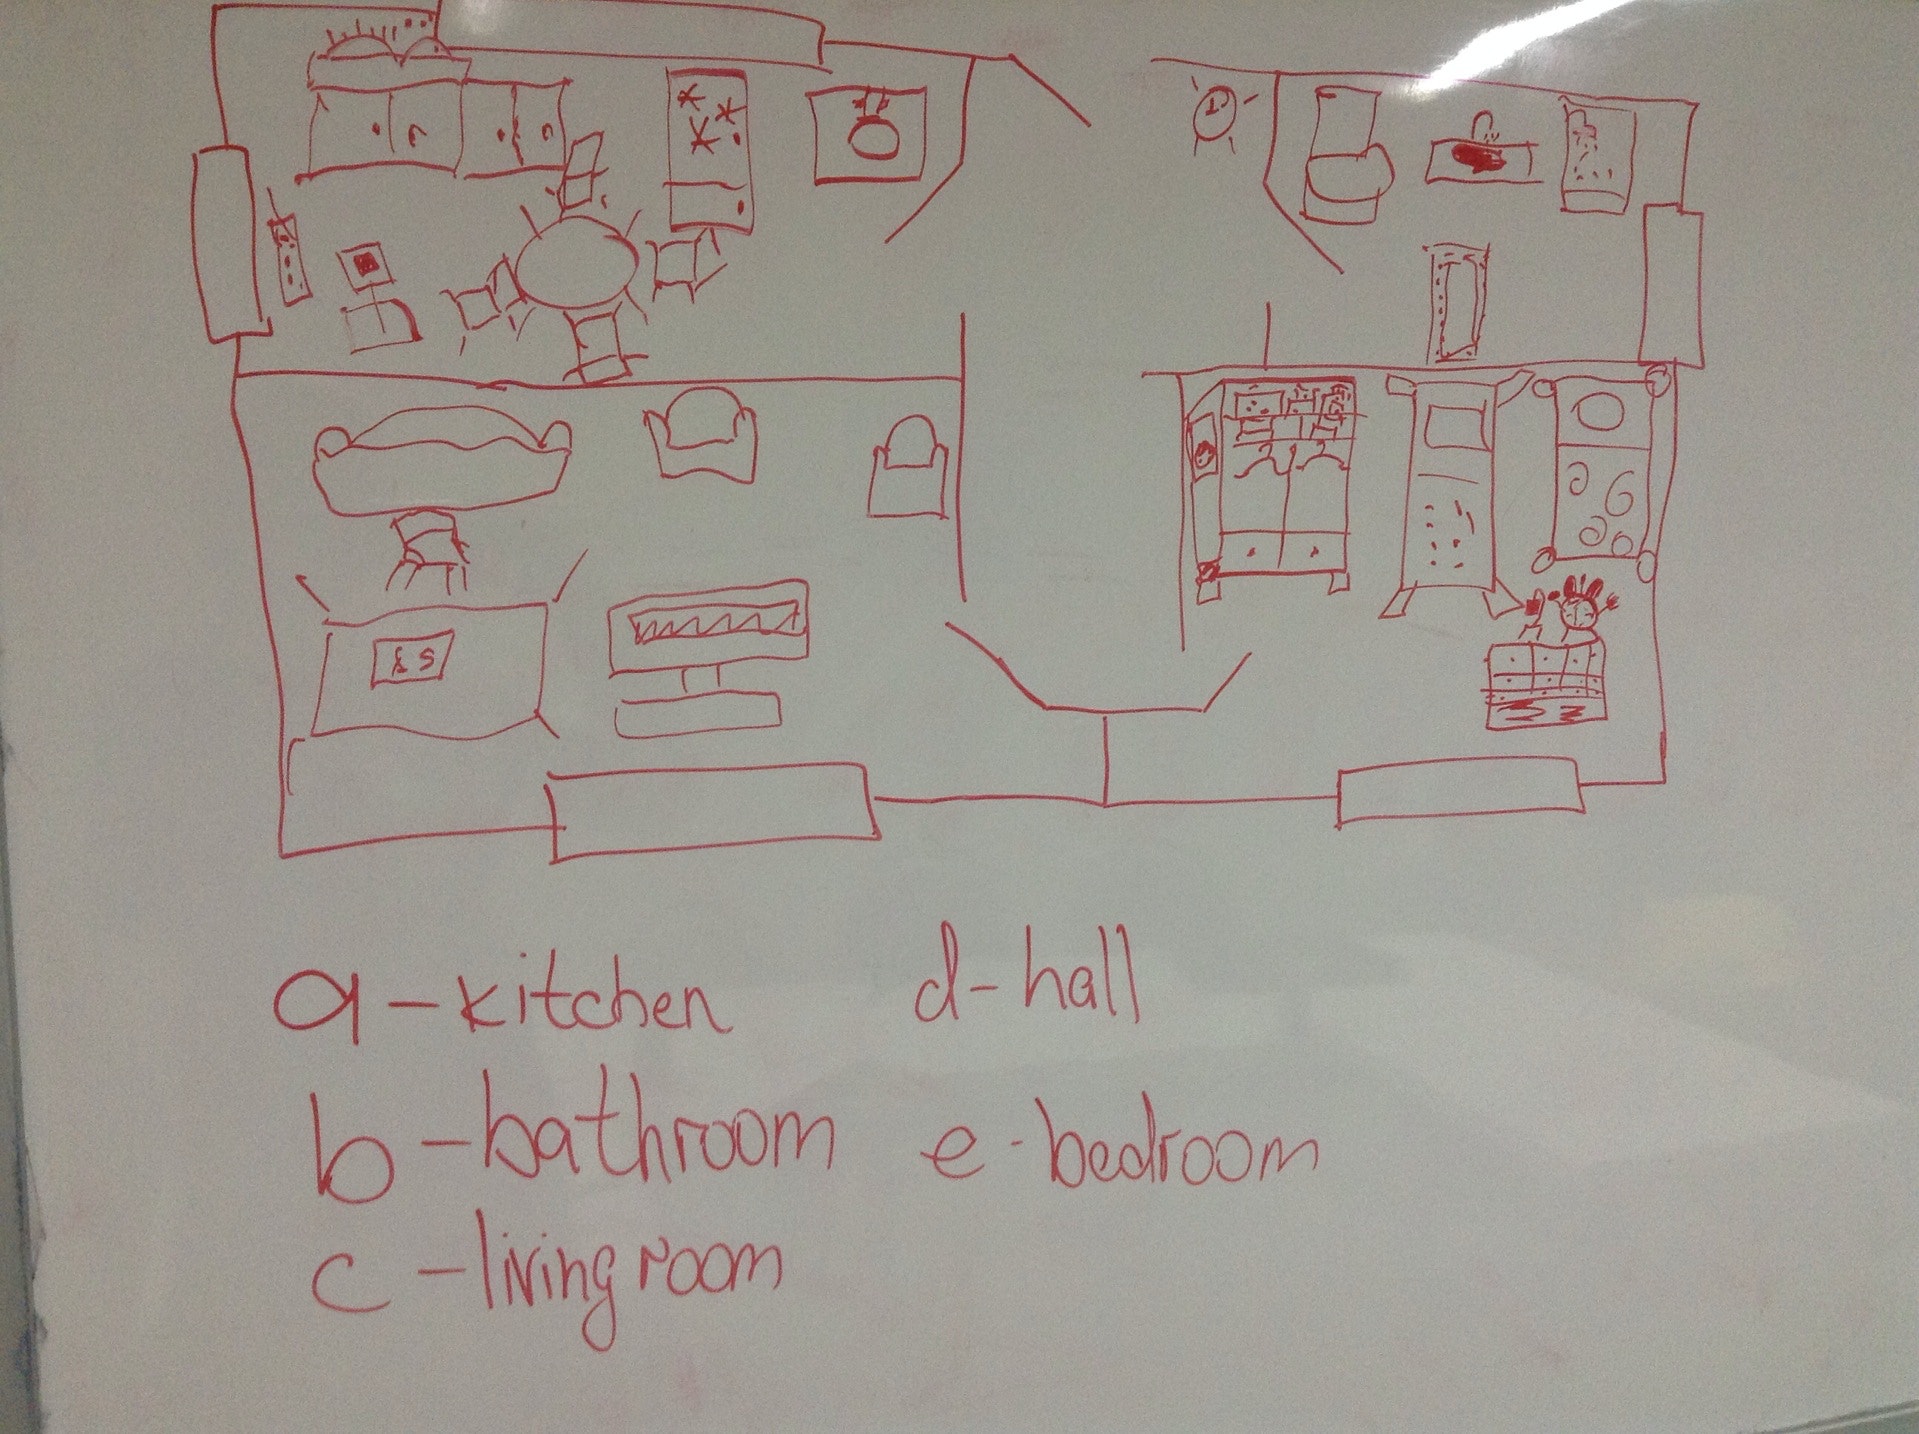 a - kitchen
b - bathroom
c - living room
d - hall
e - bedroom